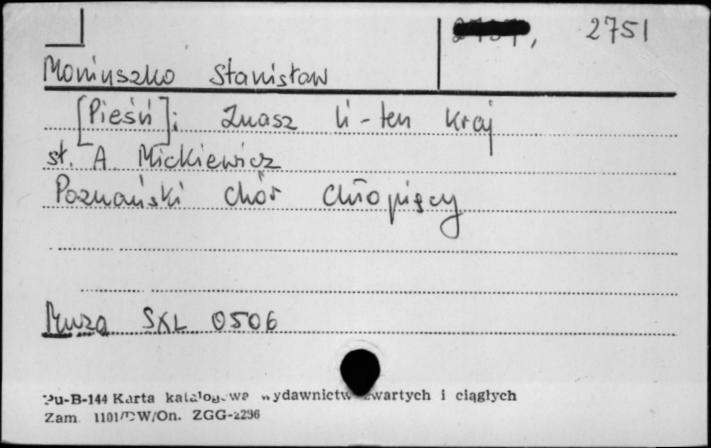 2751
Moniuszko Stanisław
[Pieśń]: Znasz li-ten kraj
sł. A. Mickiewicz
Poznański chór chłopięcy
Muza SXL 0506
Pu-B-144 Karta katalogowa wydawnictw zwartych i ciągłych
Zam. 1101/DW/On. ZGG-2296